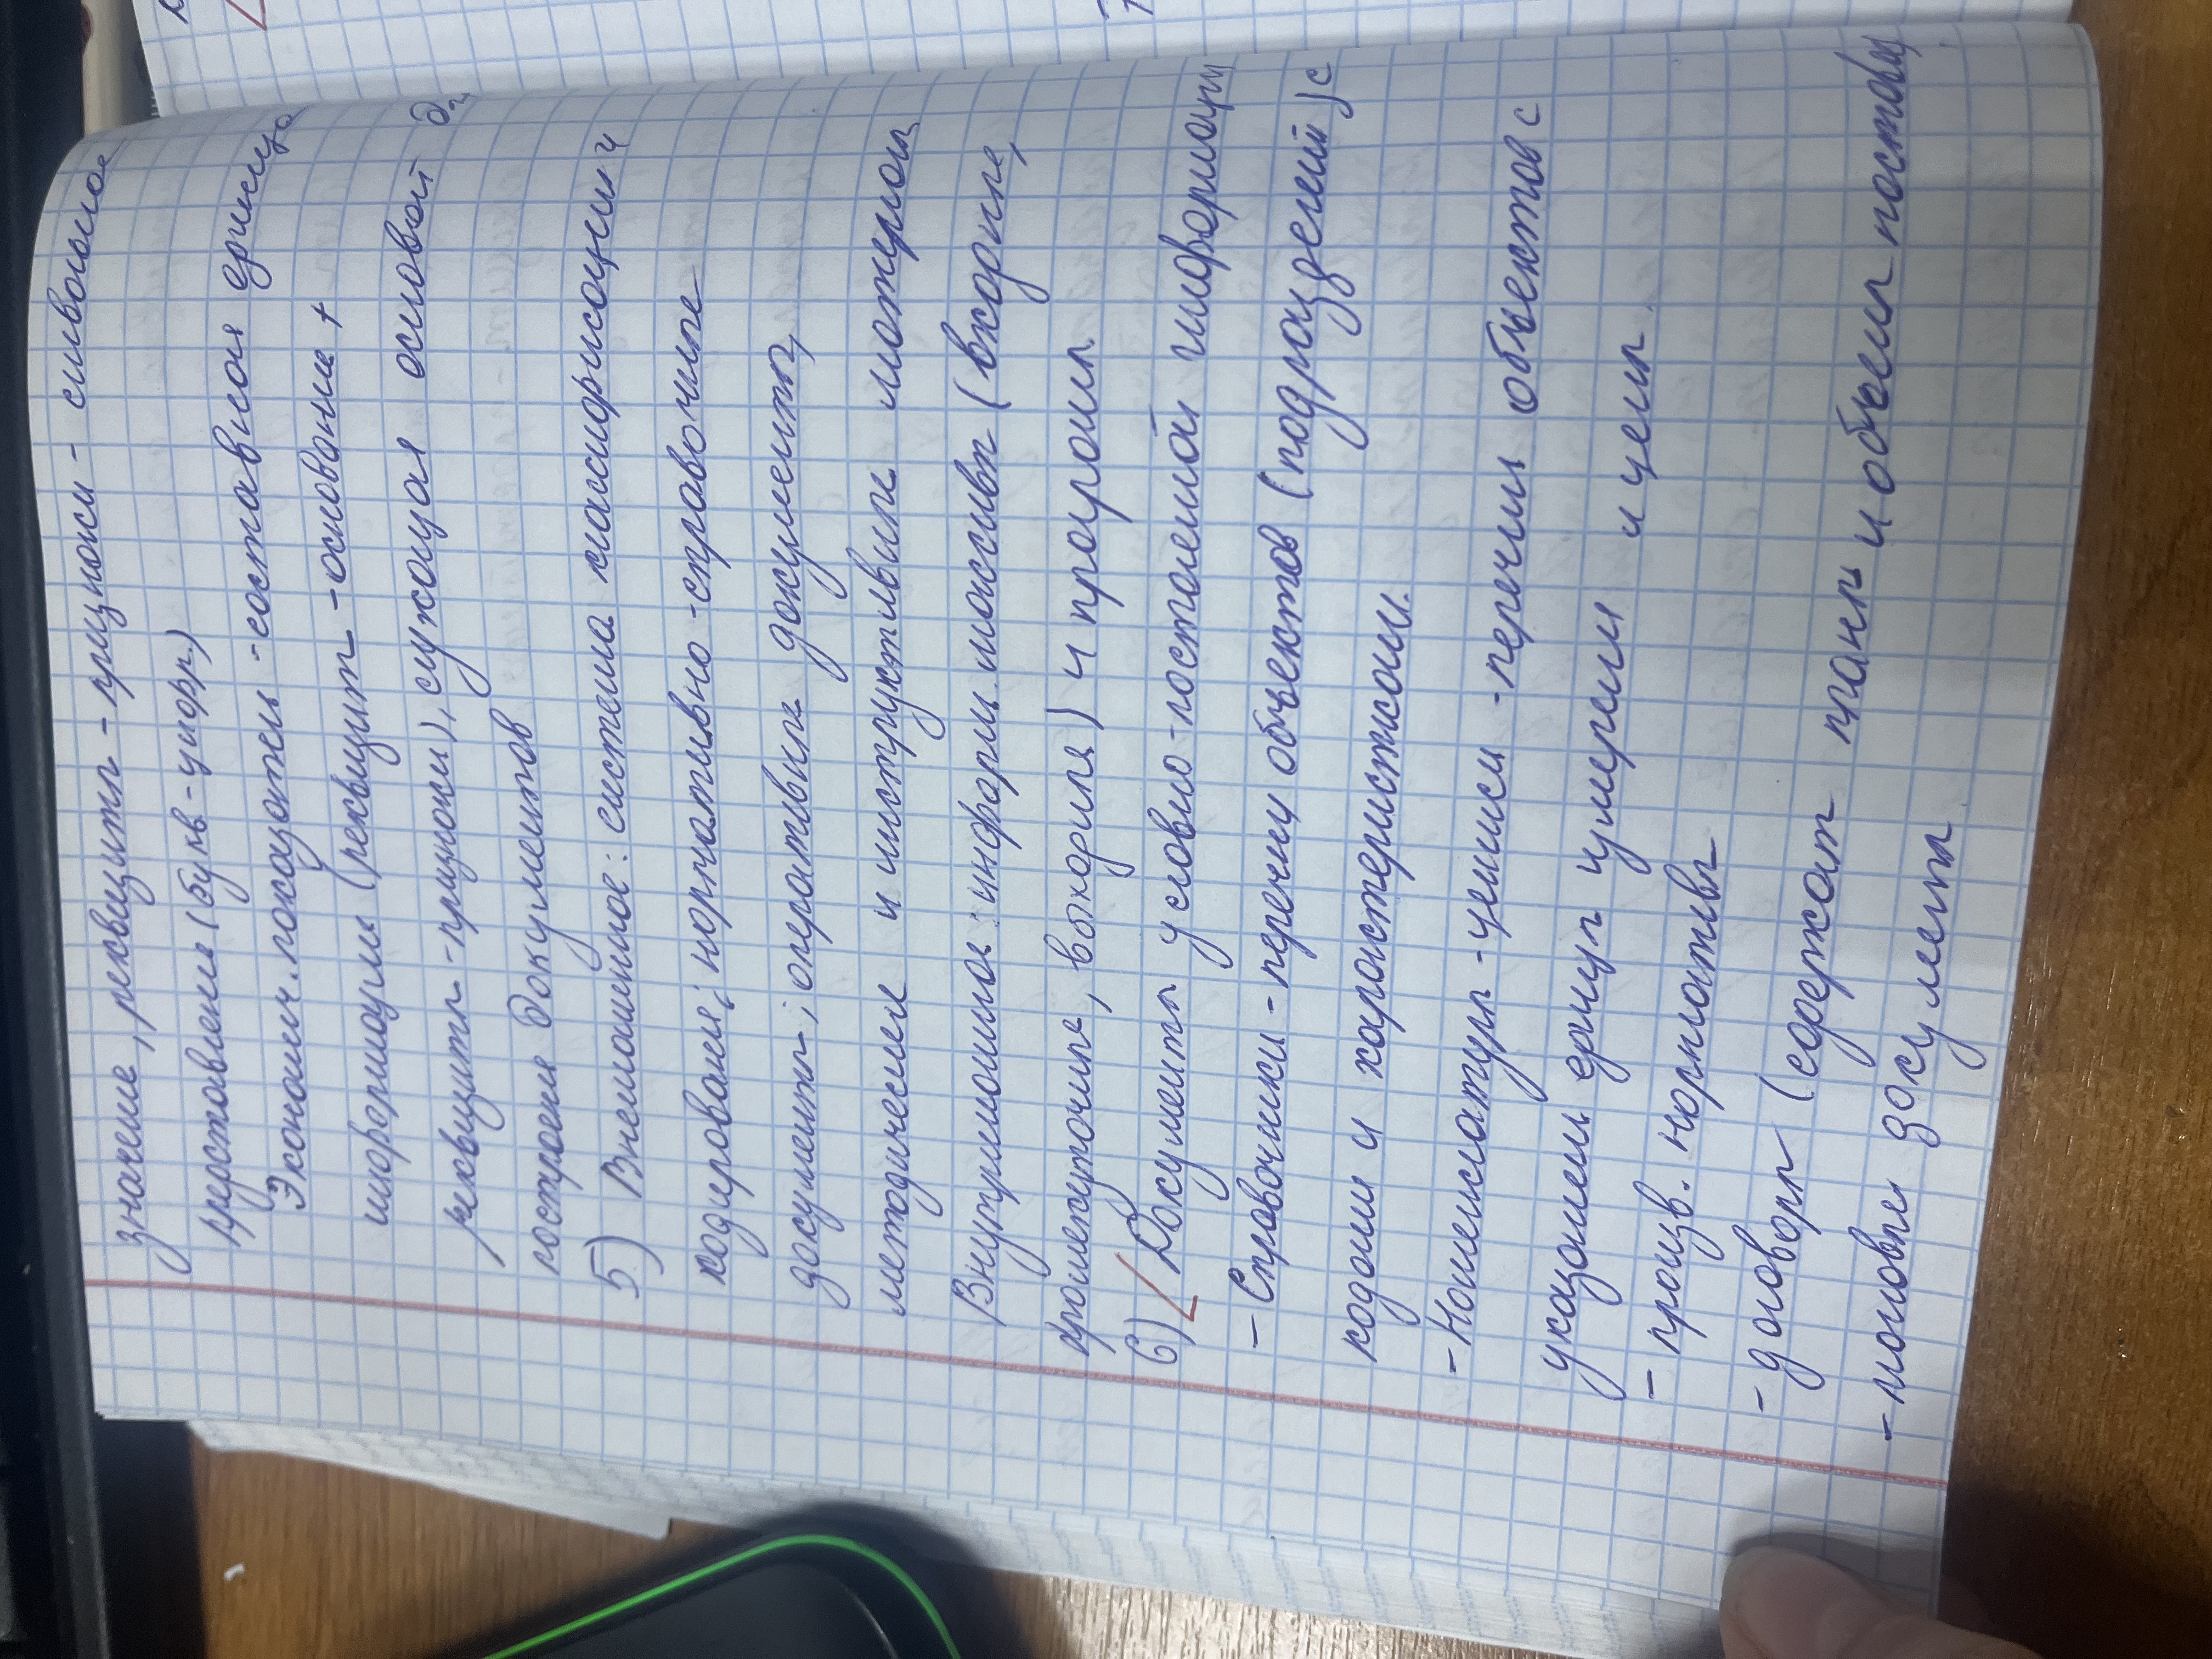 значение, реквизиты-признаки - символьное
представление (букв-цифр)
Экономич. показатель - составная единица
информации (реквизит - основание +
реквизиты-признаки), служащая основой для
построения документов
5) Внемашинное: система классификации и
кодирования; нормативно-справочные
документы; оперативные документы,
методические и инструктивные материалы
Внутримашинное: информ. массивы (входные,
промежуточные, выходные) и программы
6) Документы условно-постоянной информации
- Справочники - перечни объектов (подразделений) с
кодами и характеристиками.
- Номенклатуры-ценники - перечни объектов с
указанием единиц измерения и цены.
- произв. нормативы
- договоры (содержат планы и объемы поставки
- плановые документы